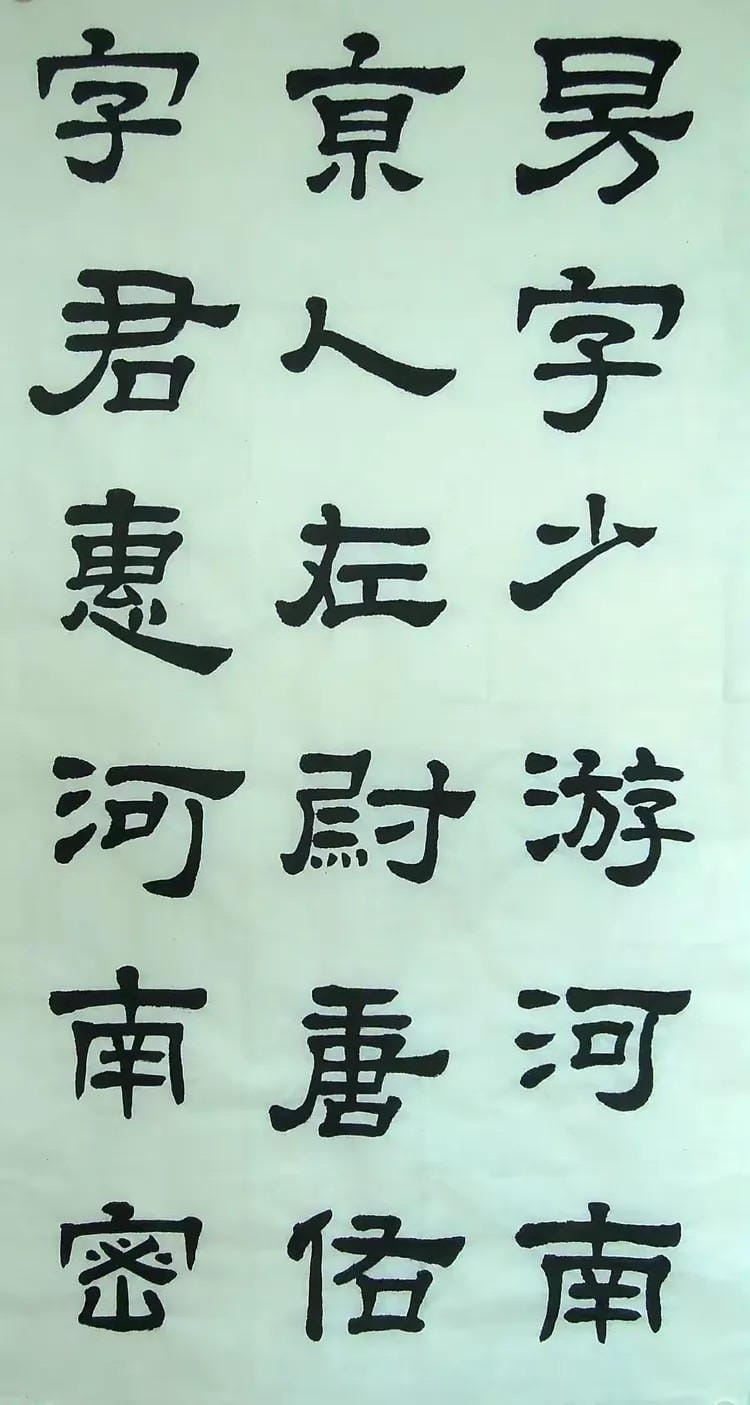 昉字少游河南
亰人左尉唐佑
字君惠河南密